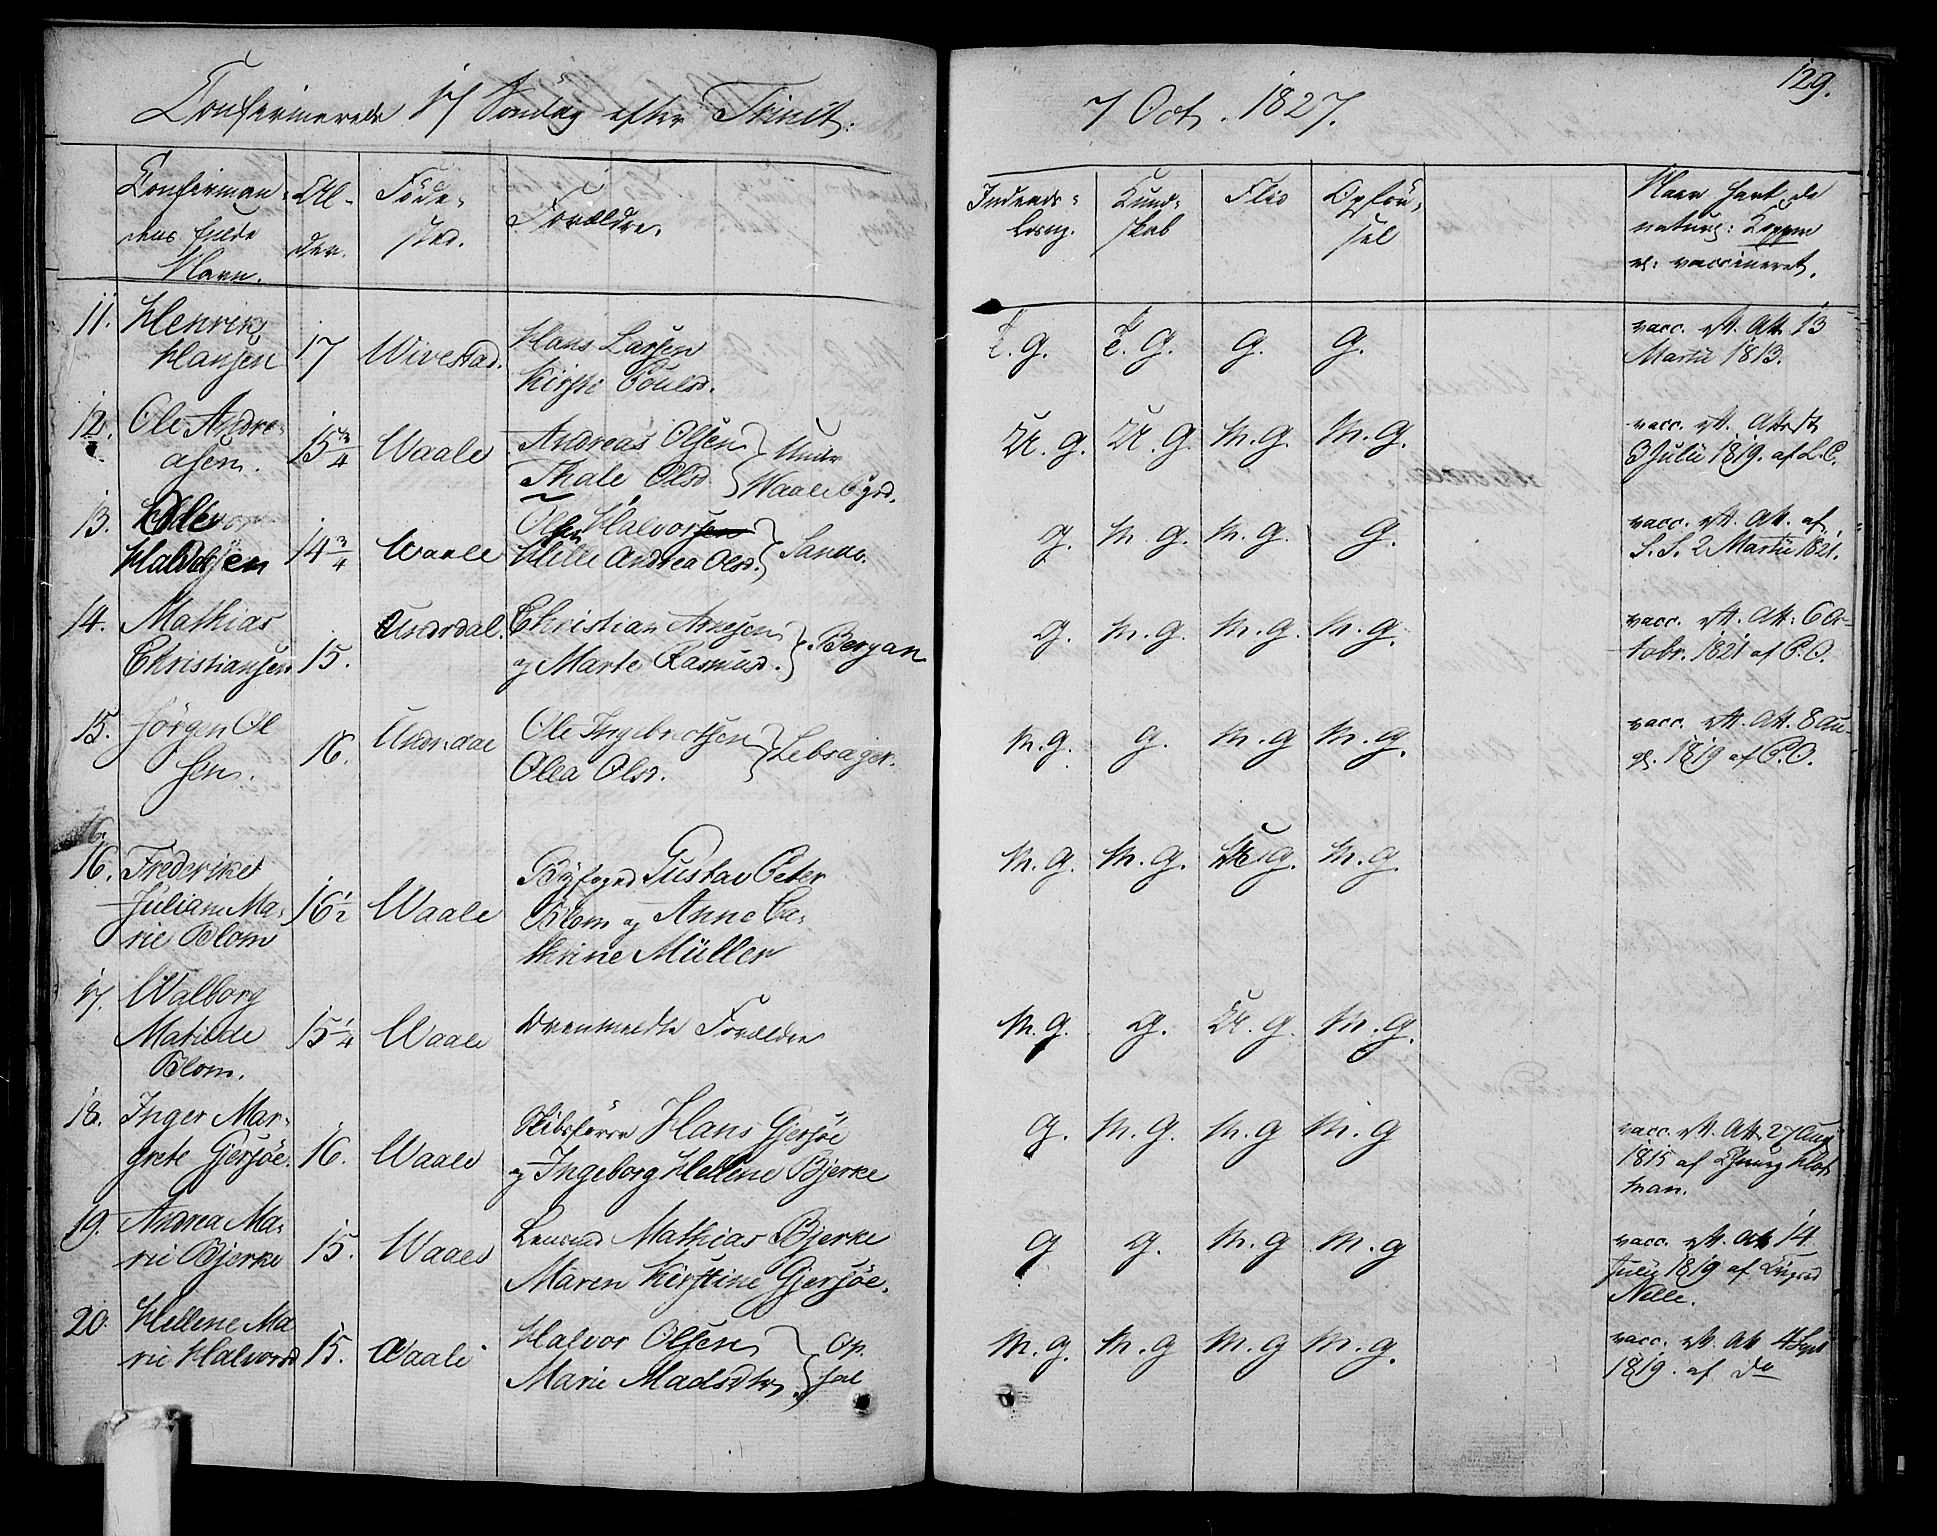 Confirmerede 17 Søndag efter Trinit:
7 Oct. 1827.
129.
Confirman-
dens fulde
Navn.
Al-
der.
Føde-
sted.
Forældre.
Indenads-
læsng.
Kund-
skab
Flid
Opføs-
sel
Naar havt de
naturl: Kopper
el: vaccineret.
11. Henrik
Hansen
17
Wivestad.
Hans Larsen
Kirsti Poulsd.
T. G. T. G. G. G.
vacc. Att. 13
Martii 1813.
12. Ole Andre-
asen.
15 3/4
Waale
Andreas Olsen
Thale Olsd.
Under
Waale
U. G. U. G. M. G. M. G.
vacc. Attest
3 Julii 1819. af L. C.
13.
Halvorsen
14 3/4
Waale
Halvorsen
Helle Andrea Olsd.
Sande.
G. M. G. M. G. G.
vacc. Att. af
S. S. 2 Martii 1821.
14. Mathias
Christiansen
15.
Undrdal.
Christian Arnesen
og Marte Rasmusd.
Bergan
G. M. G. M. G. M. G.
vacc. Att. 6 Oc-
tobr. 1821 af P. O.
15. Jörgen Ol
sen.
16.
Undrdal
Ole Ingebretsen
Olea Olsd.
Lebsager.
M. G. G. M. G M. G.
vacc. Att. 8 au-
g. 1819 af P. O.
16. Frederiket
Juliane Ma-
rie Blom
16 1/2
Waale
Byfoged Gustav Peter
Blom og Anne Ca-
thrine Müller
M. G. M. G. G. M. G.
17. Walborg
Matilde
Blom.
15 1/4
Waale
Ovenmeldte Forældre
M. G. G. U. G. M. G.
18. Inger Mar-
grete Gjersøe.
16.
Waale
Skibsfører Hans Gjersøe
og Ingeborg Hellene Bjerke
G. M. G. M. G M. G
vacc. Att. 27 Aug
1815 af
man.
19. Andrea Ma-
rie Bjerke
15.
Waale
Mathias Bjerke
Maren Kirstine Gjersøe.
G G. M. G M. G
vacc. Att 14
Julii 1819 af
20. Hellene Ma
rie Halvorsd
15.
Waale
Halvor Olsen
Marie Madsdtr
Op
sal
M. G. M. G M. G M. G.
vacc. Att 4 Sept
1819. af do